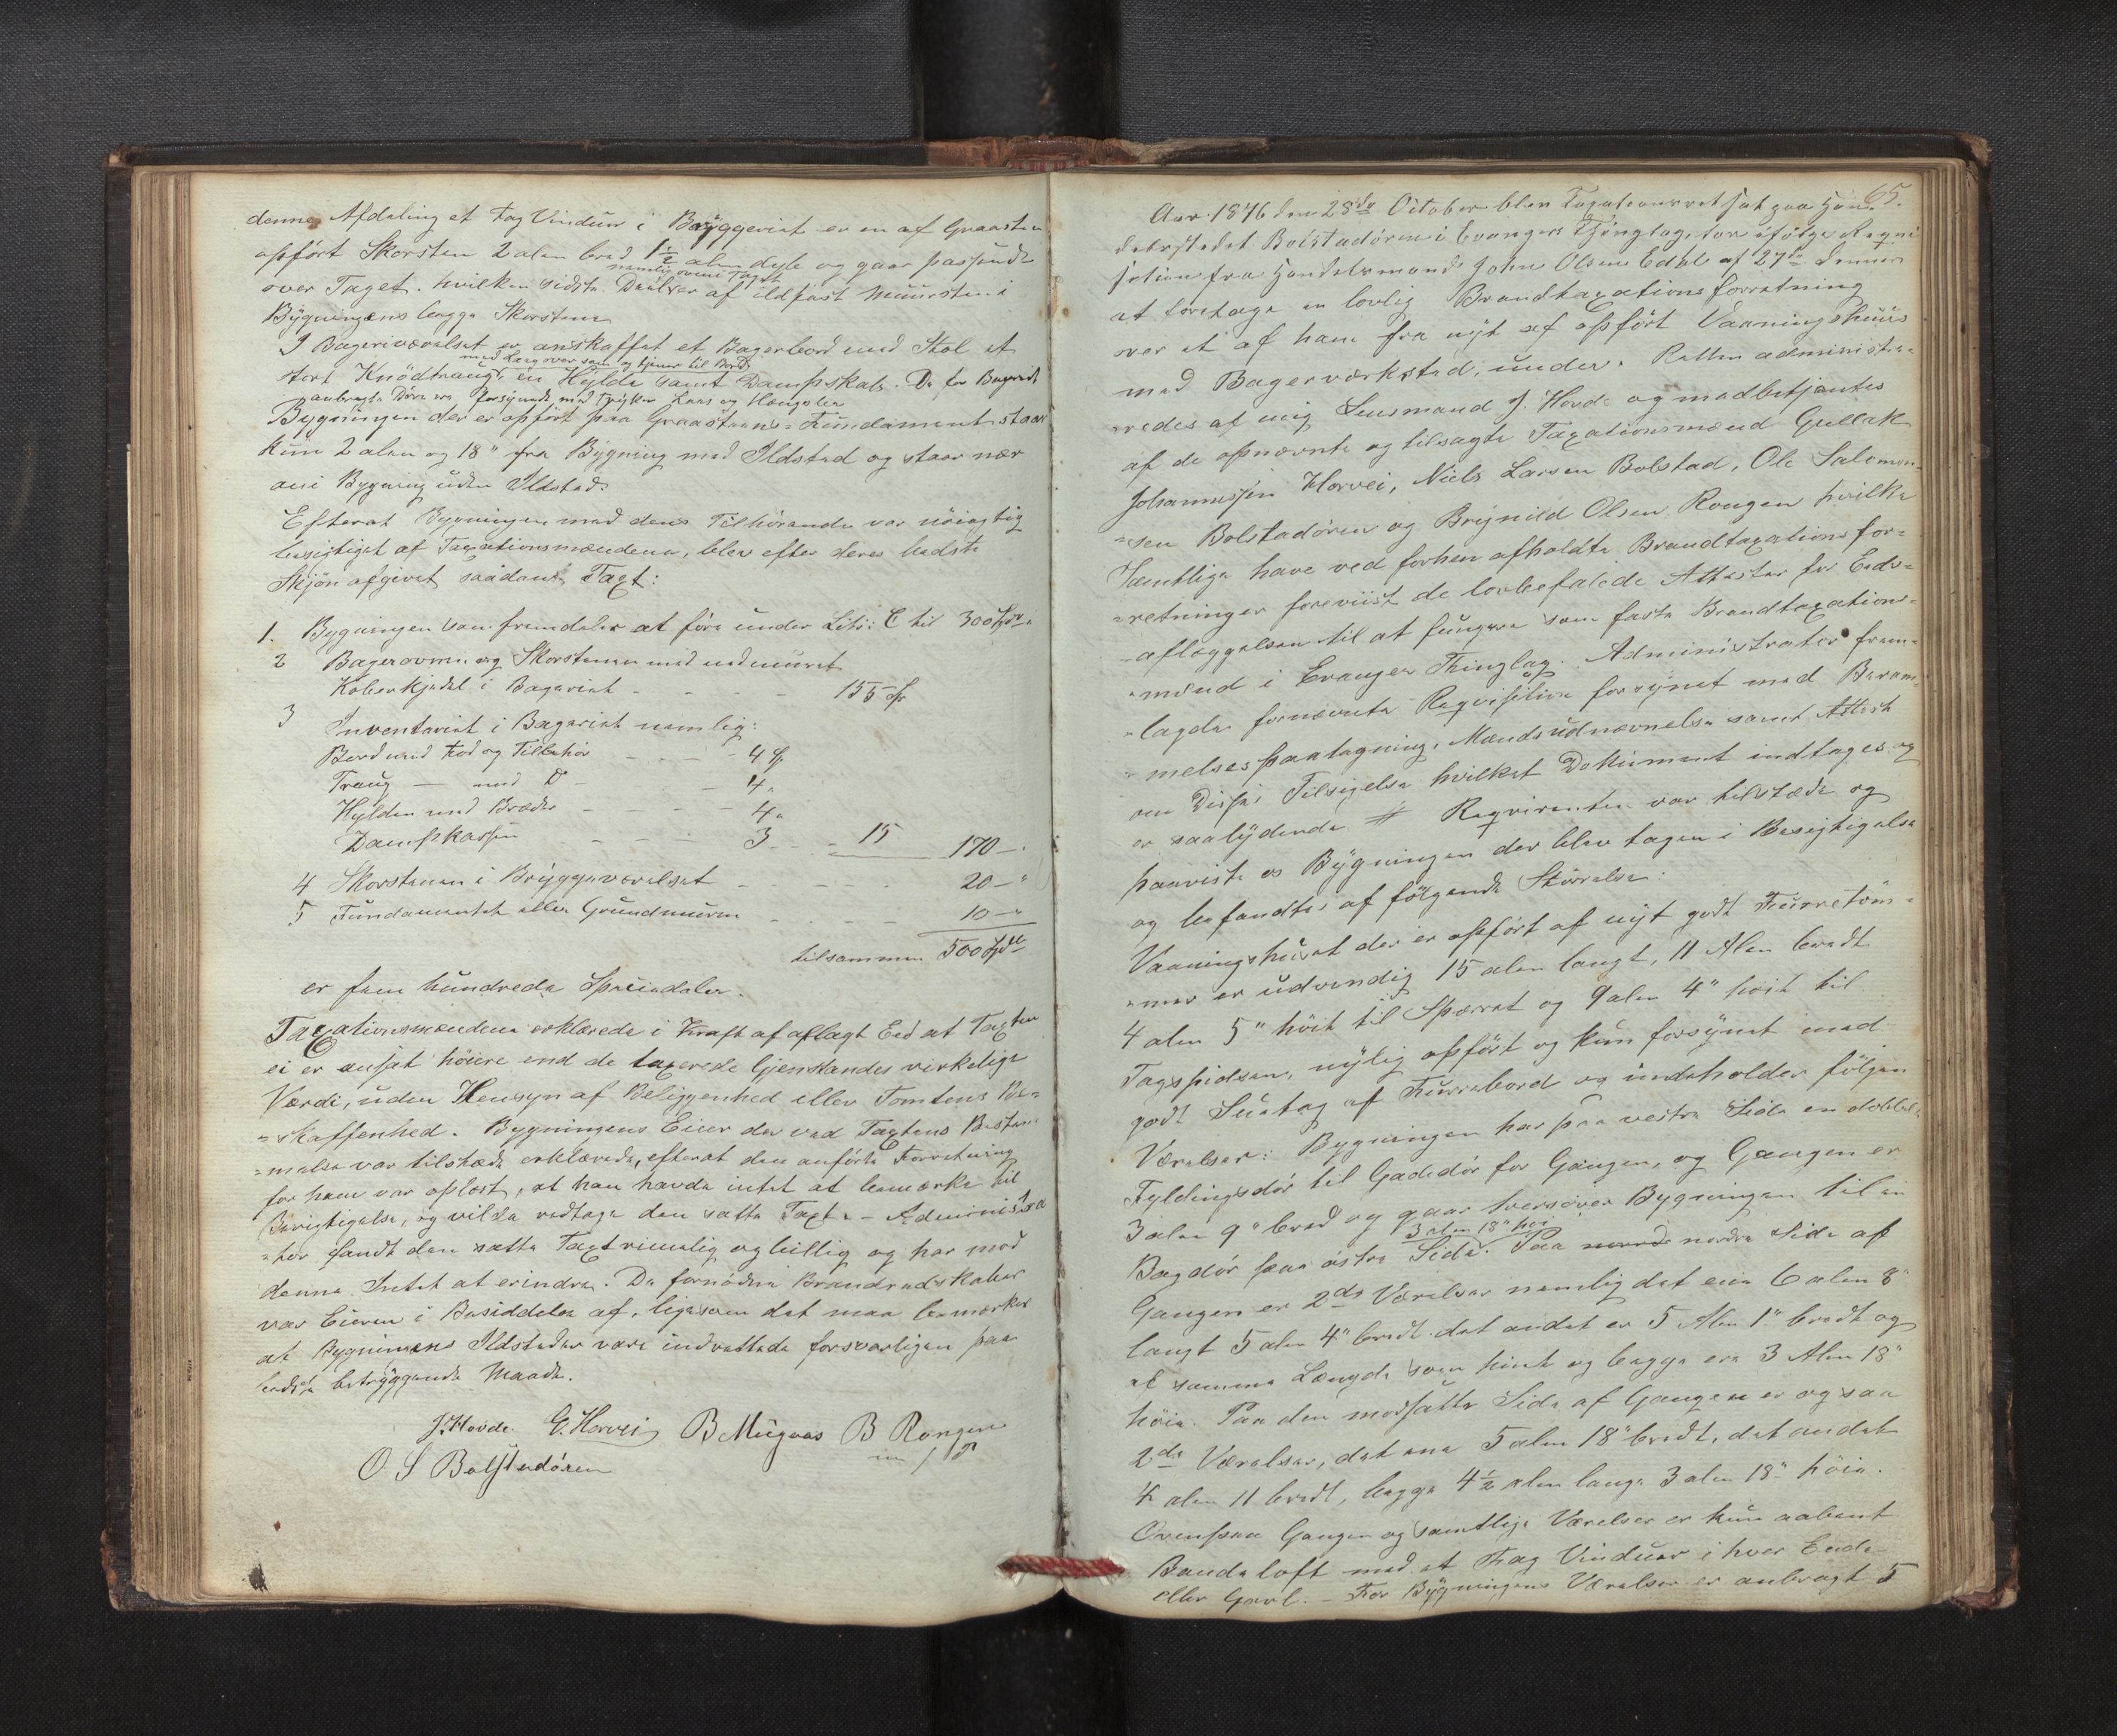 denne Afdeling et Fag Vinduer i Bryggeriet er en af Graasten
opført Skorsten 2 alen bred 1½ alen dyb og gaar passende
nemlig oveni Taget
over Taget. hvilken sidste Deel er af ildfast Muursten i
Bygningens begge Skorstene
I Bageriværelset er anskaffet et Bagerbord med Stol et
med Laag over som og tjener til Bord
stort Knödtraug, en Hylde samt Dampskab. De for Bageriet
anbragte Döre ere forsynede med Tryker Laas og Hængsler
Bygningen der er opført paa Graasteens-Fundament staar
kun 2 alen og 18" fra Bygning med Ildsted og staar nær
ani Bygning uden Ildsted.
Efterat Bygningen med dens Tilhörende var nöiagtig
besigtiget af Taxationsmændene, blev efter deres bedste
Skjön afgivet saadant Taxt:
1. Bygningen som fremdeles at före under Litr: C til 300 Spd
2 Bagerovnen og Skorstenen med indmuret
Koberkjedel i Bageriet - - - - 155 Sp
3 Inventariet i Bageriet nemlig:
Bord med Fod og Tilbehör - - - 4 Sp
Traug — med Do - - - 4 "
Hylden med Bræder - - - 4 "
Dampkassen - - - 3 - - 15 170 - "
4 Skorstenen i Bryggeværelset - - - - 20 - "
5 Fundamentet eller Grundmuren - - - - 10 - "
tilsammen 500 Spdl
er fem hundrede Speciedaler.
Taxationsmændene erklærede i Kraft af aflagt Eed at Taxten
ei er ansat höiere end de taxerede Gjenstandes virkelige
Værdi, uden Hensyn af Beliggenhed eller Tomtens Be-
-skaffenhed. Bygningens Eier der ved Taxtens Bestem-
-melse var tilstæde erklærede, efterat den anförte Forretning
for ham var oplæst, at han havde intet at bemærke til
Berigtigelse, og vilde vedtage den satte Taxt. - Administra
-tor fandt den satte Taxt rimelig og billig og har mod
denne Intet at erindre. De fornödne Brandredskaber
var Eieren i Besiddelse af, ligesom det maa bemærkes
at Bygningens Ildsteder være indrettede forsvarligen paa
bedste betryggende Maade.
J. Hovde G. Horvei B Mügaas B Rongen
m/P
O S Bolstadören
65.
Aar 1876 den 28de October blev Taxationsret sat paa Han-
delsstedet Bolstadören i Evangers Thinglag, for ifölge Reqvi
sition fra Handelsmand John Olsen Edal af 27de dennes
at foretage en lovlig Brandtaxationsforretning
over et af ham fra nyt af opfört Vaaningshuus
med Bagerværksted, under. Retten administre-
-redes af mig Lensmand J. Hovde og medbetjentes
af de opnævnte og tilsagte Taxationsmænd Gullak
Johannessen Horvei, Niels Larsen Bolstad, Ole Salomon-
-sen Bolstadören og Brynild Olsen Rongen hvilke
Samtlige have ved forhen afholdte Brandtaxationsfor-
-retninger foreviist de lovbefalede Attester for Eeds-
-aflæggelsen til at fungere som faste Brandtaxations-
-mænd i Evanger Thinglag. Administrator frem-
-lagde fornævnte Reqvisition forsynet med Beram-
-melsespaategning, Mændsudnævnelse samt Attest
om Disses Tilsigelse hvilket Dokument indtages og
er saalydende # Reqvirenten var tilstæde og
paaviste os Bygningen der blev tagen i Besigtigelse
og befandtes af fölgende Störrelse:
Vaaningshuset der er opfört af nyt godt Furretöm-
-mer er udvendig 15 alen langt, 11 Alen bredt
4 alen 5" höit til Spærret og 9 alen 4" höit til
Tagspidsen, nylig opfört og kun forsynet med
godt Suetag af Furrebord og indeholder fölgen
Værelser: Bygningen har paa vestre Side en dobbel
Fyldingsdör til Gadedör for Gangen, og Gangen er
3 alen 9" bred og gaar tversover Bygningen til en
3 alen 18" höi
Bagdör paa östre Side. Paa nord nordre Side af
Gangen er 2de Værelser nemlig det ene 6 alen 8"
langt 5 alen 4" bredt. det andet er 5 Alen 1" bredt og
af samme Længde som hint og begge ere 3 Alen 18"
höie. Paa den modsatte Side af Gangen er og saa
2de Værelser, det ene 5 alen 18" bredt, det andet
4 alen 11 bredt, begge 4½ alen lange 3 alen 18" höie.
Ovenpaa Gangen og samtlige Værelser er kun aabent
Bandeloft med et Fag Vinduer i hver Ende
eller Gavl. - For Bygningens Værelser er anbragt 5